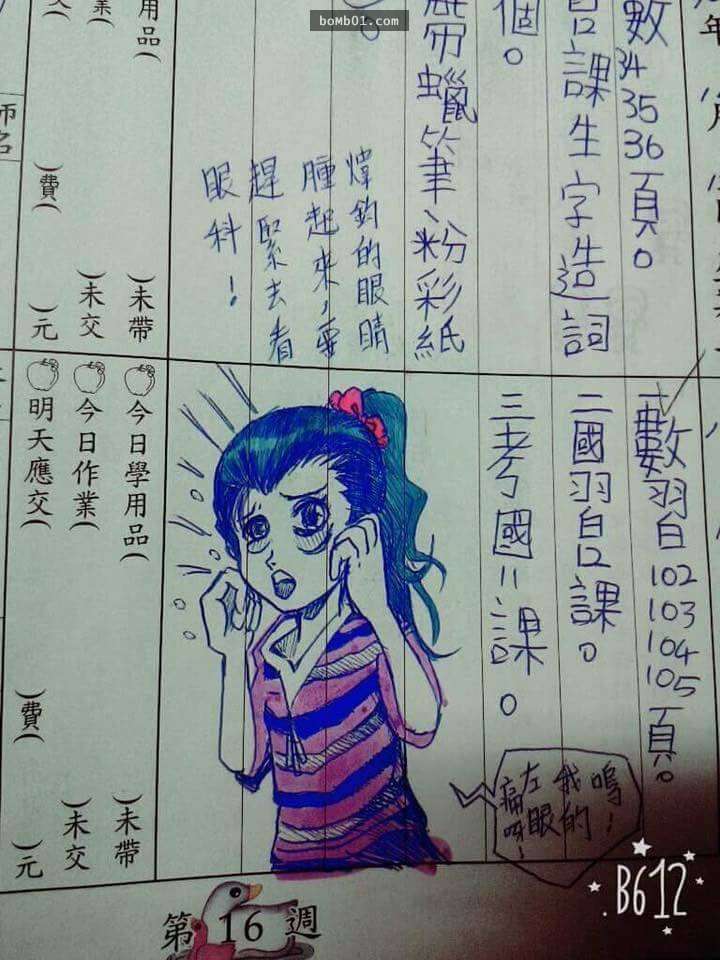 boMb01.com
數34 35 36頁。
習課生字造詞
個。
帶蠟筆、粉彩紙
。
煒鈞的眼睛
腫起來,要
趕緊去看
眼科!
用品( )未帶
業( )未交
( 費 )元
一數習102 103 104 105頁。
二國習課。
三考國11課。
嗚!
我的
左眼
痛呀!
今日學用品( )未帶
今日作業( )未交
明天應交( 費 )元
第16週
B612